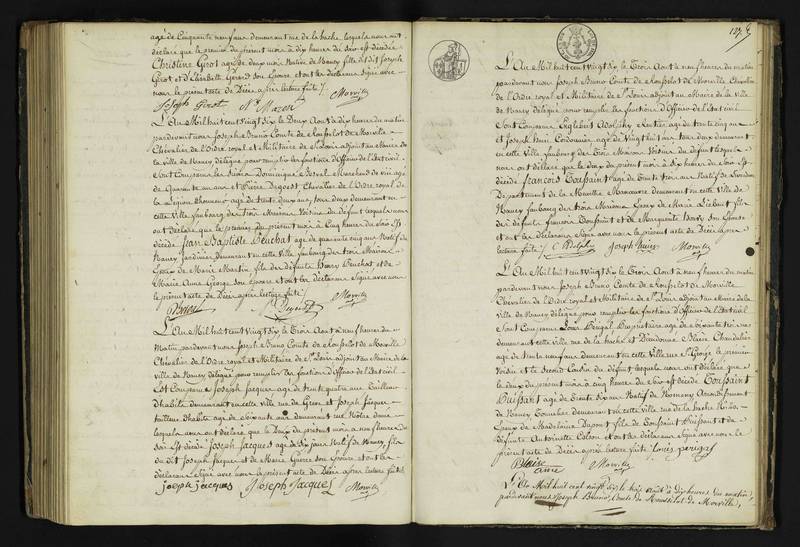 agé de Cinquante neuf ans demeurant rue de la hache, lesquels nous ont
déclaré que le premier du présent mois à dix heures du soir est décédée
Christine Gerot agée de deux mois Native de Nancy fille dudit Joseph
Gerot et d'Elisabeth Gerard son Epouse et ont les déclarans Signé avec
nous le présent acte de Décès après lecture faite /.
Joseph Gerot Morville
L'An Mil huit cent vingt dix le Deux Aout à dix heures du matin
pardevant nous Joseph Bruno Comte de Rousselot de Morville
Chevalier de l'Ordre royal et Militaire de St Louis adjoint au Maire de
la ville de Nancy délégué pour remplir les fonctions d'Officier de l'Etat civil
Sont Comparus les Sieurs Dominique Marchand de vin agé
de Quarante un ans et Pierre Chevalier de l'Ordre royal de
la Légion d'honneur agé de trente deux ans, tous deux demeurant en
cette Ville faubourg des trois Maisons Voisins du défunt lesquels nous
ont déclaré que le premier du présent mois à Cinq heures du soir Est
décédé Jean Baptiste Beuchat agé de quarante cinq ans Natif de
Nancy Jardinier demeurant en cette Ville faubourg des trois Maisons
Epoux de Marie Martin fils de défunts Henry Beuchat et de
Marie Anne George son épouse et ont les déclarans Signé avec nous
le présent acte de Décès après lecture faite /.
Morville
L'An Mil huit cent vingt dix le Trois Aout à neuf heures du
Matin pardevant nous Joseph Bruno Comte de Rousselot de Morville
Chevalier de l'Ordre royal et Militaire de St Louis adjoint au Maire de la
ville de Nancy délégué pour remplir les fonctions d'Officier de l'Etat civil
Est Comparu Joseph Jacques agé de trente quatre ans Tailleur
d'habits demeurant en cette ville rue de Greve et Joseph Jacques
tailleur d'habits agé de soixante ans demeurant rue Notre Dame
lesquels nous ont déclaré que le Deux du présent mois à neuf heures du
soir Est décédé Joseph Jacques agé de dix jours Natif de Nancy fils
du dit Joseph Jacques et de Marie son épouse et ont les
déclarans Signé avec nous le présent acte de Décès après lecture faite /.
joseph jacques Joseph Jacques Morville
L'An Mil huit cent vingt dix le Trois Aout à neuf heures du matin
pardevant nous Joseph Bruno Comte de Rousselot de Morville, Chevalier
de l'Ordre royal et Militaire de St Louis adjoint au Maire de la ville
de Nancy délégué pour remplir les fonctions d'Officier de l'Etat civil
Sont Comparus Englebert Adolphe Rentier agé de trente cinq ans
et Joseph Cordonnier agé de Vingt huit ans tous deux demeurant
en cette ville faubourg des Trois Maisons Voisins du défunt lesquels
nous ont déclaré que le deux du présent mois à dix heures du soir Est
décédé François Toussaint agé de Trente trois ans Natif de
Département de la Meurthe Manoeuvre demeurant en cette Ville de
Nancy faubourg des trois Maisons Epoux de Marie fils
des défunts François Toussaint et de Marguerite Henry son Epouse
et ont les déclarans Signé avec nous le présent acte de Décès après
lecture faite /. Morville
L'An Mil huit cent vingt dix le Trois Aout à neuf heures du matin
pardevant nous Joseph Bruno Comte de Rousselot de Morville
Chevalier de l'Ordre royal et Militaire de St Louis adjoint au Maire de la ville
de Nancy délégué pour remplir les fonctions d'Officier de l'Etat civil
Sont Comparus Louis Propriétaire agé de soixante trois ans
demeurant cette ville rue de la hache et Dieudonné Chandelier
agé de trente neuf ans demeurant en cette Ville rue St George le premier
Voisin et le second Cousin du défunt lesquels nous ont déclaré que
le deux du présent mois à cinq heures du soir est décédé Toussaint
Buissant agé de Trente six ans Natif de Nomeny Arrondissement
de Nancy Tonnelier demeurant en cette ville rue de la hache
Epoux de Madelaine Dupont fils de Toussaint Buissant et de
défunte Antoinette Colson et ont les déclarans Signé avec nous le
présent acte de Décès après lecture faite /.
Blaise
ainé Morville
L'An Mil huit cent vingt dix le trois Août à dix heures du matin
pardevant nous Joseph Bruno, Comte de Rousselot de Morville,